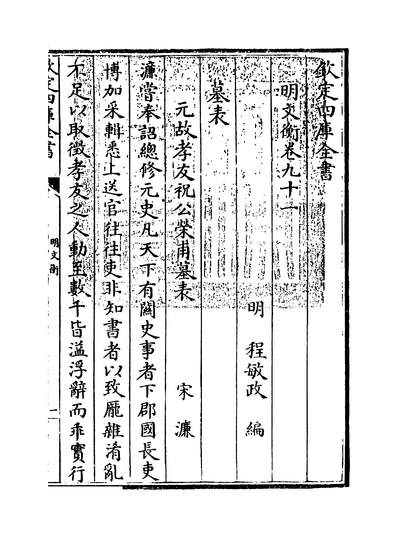 欽定四庫全書
明文衡卷九十一
明 程敏政 編
墓表
元故孝友祝公榮甫墓表 宋濂
濂嘗奉詔總修元史凡天下有關史事者下郡國長吏
博加采輯悉上送官往往吏非知書者以致厖雜淆亂
不足以取徵孝友之人動至數千皆溢浮辭而乖實行
欽定四庫全書
明文衡
一